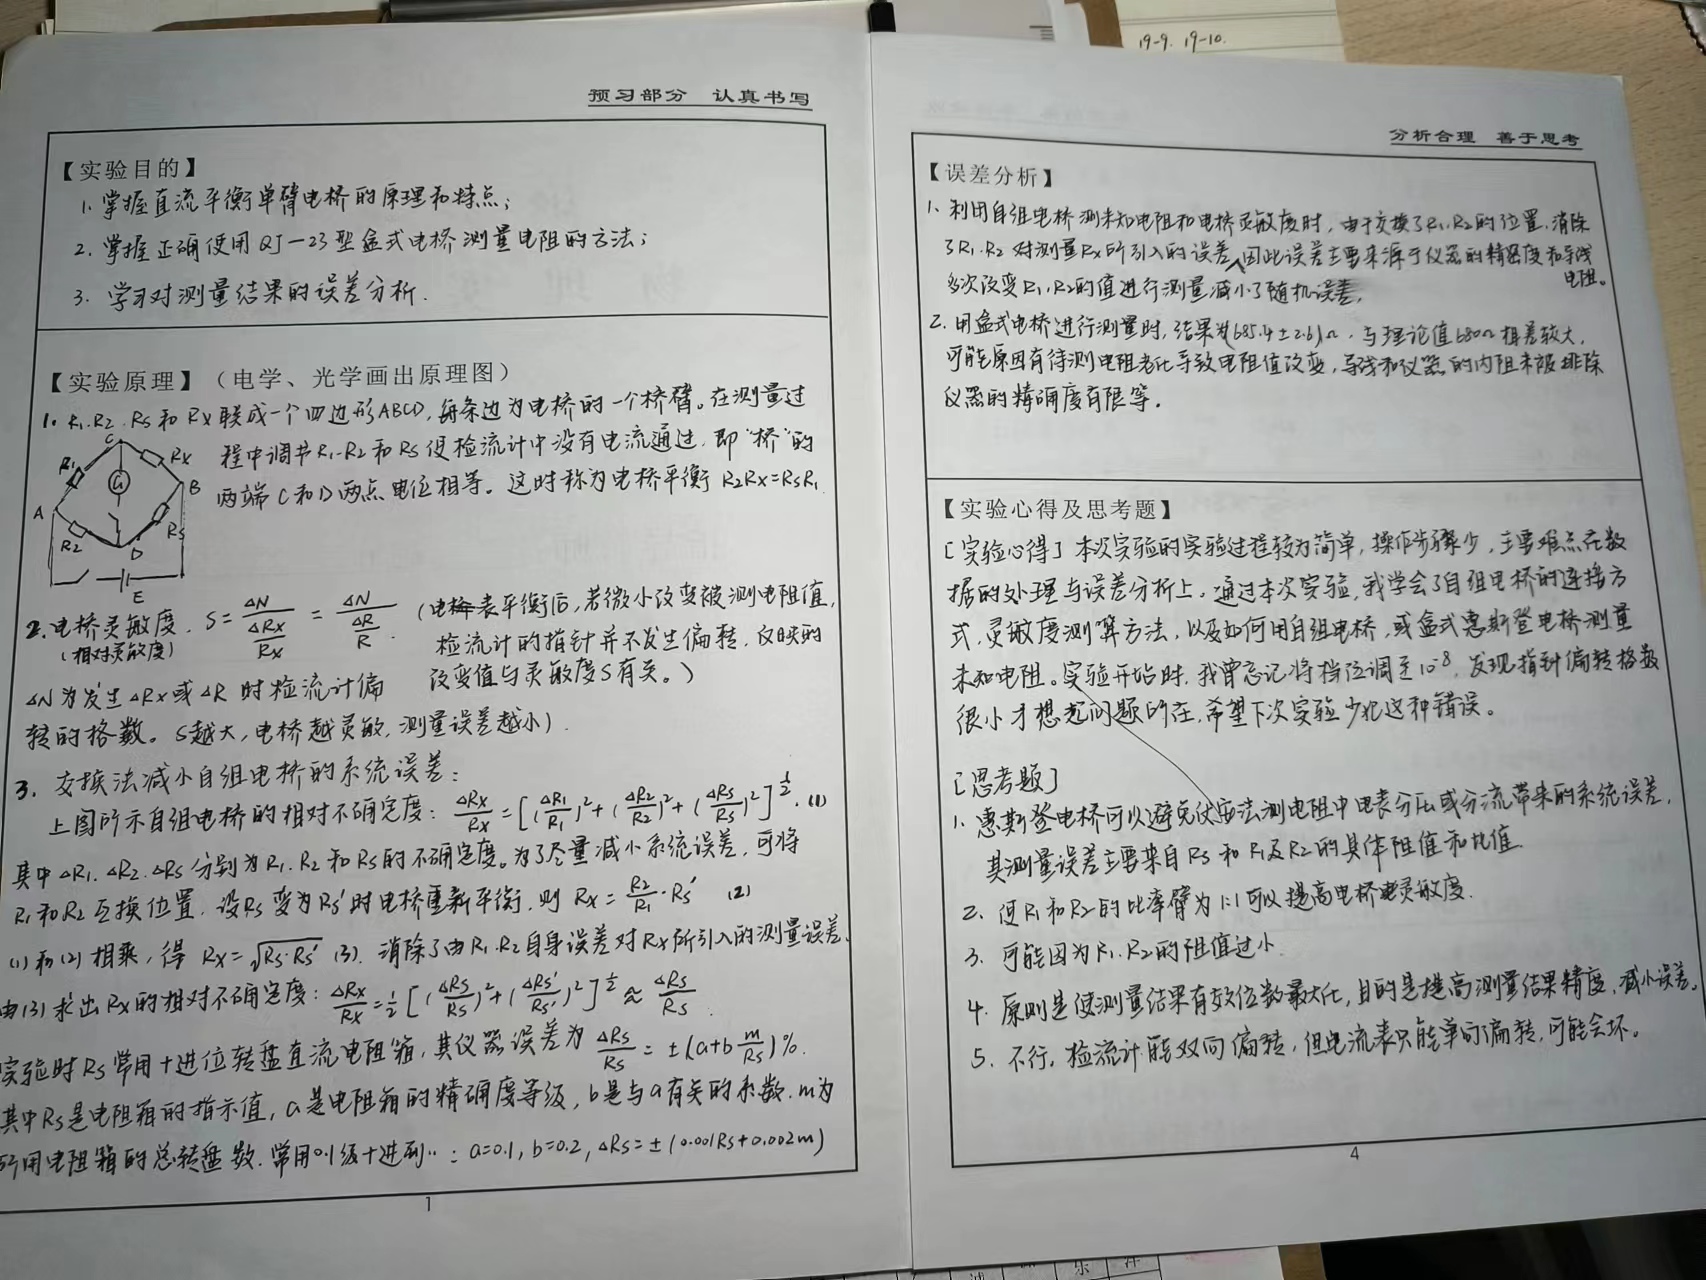 19-9. 19-10.
预习部分 认真书写
【实验目的】
1. 掌握直流平衡单臂电桥的原理和特点；
2. 掌握正确使用QJ-23型盒式电桥测量电阻的方法；
3. 学习对测量结果的误差分析.
【实验原理】（电学、光学画出原理图）
1. R1.R2.RS和RX联成一个四边形ABCD，每条边为电桥的一个桥臂。在测量过
程中调节R1.R2和RS使检流计中没有电流通过，即“桥”的
两端C和D两点电位相等。这时称为电桥平衡 R2RX=RSR1
C
R1 RX
G
A B
R2 RS
D
E
2. 电桥灵敏度. S = ΔN/(ΔRX/RX) = ΔN/(ΔR/R). （电桥平衡后，若微小改变被测电阻值，
（相对灵敏度） 检流计的指针并不发生偏转，反映的
改变值与灵敏度S有关。）
ΔN为发生ΔRX或ΔR时检流计偏
转的格数。S越大，电桥越灵敏，测量误差越小）.
3. 交换法减小自组电桥的系统误差：
上图所示自组电桥的相对不确定度：ΔRX/RX = [(ΔR1/R1)²+(ΔR2/R2)²+(ΔRS/RS)²]^½. (1)
其中ΔR1.ΔR2.ΔRS分别为R1.R2和RS的不确定度。为了尽量减小系统误差，可将
R1和R2互换位置. 设RS变为RS'时电桥重新平衡，则 RX = R2/R1 · RS' (2)
(1)和(2)相乘，得 RX=√RS·RS' (3). 消除了由R1.R2自身误差对RX所引入的测量误差.
由(3)求出RX的相对不确定度：ΔRX/RX = ½ [(ΔRS/RS)²+(ΔRS'/RS')²]^½ ≈ ΔRS/RS.
实验时RS常用十进位转盘直流电阻箱，其仪器误差为 ΔRS/RS = ±(a+b m/RS)%.
其中RS是电阻箱的指示值，a是电阻箱的精确度等级，b是与a有关的系数. m为
所用电阻箱的总转盘数. 常用0.1级十进 : a=0.1, b=0.2, ΔRS=±(0.001RS+0.002m)
1
分析合理 善于思考
【误差分析】
1. 利用自组电桥测未知电阻和电桥灵敏度时，由于交换了R1.R2的位置，消除
了R1.R2对测量RX所引入的误差，因此误差主要来源于仪器的精密度和导线
电阻。
多次改变R1.R2的值进行测量减小了随机误差,
2. 用盒式电桥进行测量时，结果为(685.4±2.6)Ω. 与理论值680Ω相差较大，
可能原因有待测电阻老化导致电阻值改变，导线和仪器的内阻未被排除
仪器的精确度有限等.
【实验心得及思考题】
[实验心得] 本次实验的实验过程较为简单，操作步骤少，主要难点在数
据的处理与误差分析上. 通过本次实验，我学会了自组电桥的连接方
式，灵敏度测算方法，以及如何用自组电桥，或盒式惠斯登电桥测量
未知电阻。实验开始时，我曾忘记将档位调至10⁻⁸，发现指针偏转格数
很小才想起问题所在，希望下次实验少犯这种错误。
[思考题]
1. 惠斯登电桥可以避免伏安法测电阻中电表分压或分流带来的系统误差，
其测量误差主要来自RS和R1及R2的具体阻值和比值.
2. 使R1和R2的比率臂为1:1可以提高电桥灵敏度.
3. 可能因为R1.R2的阻值过小.
4. 原则是使测量结果有效位数最大化，目的是提高测量结果精度，减小误差。
5. 不行，检流计能双向偏转，但电流表只能单向偏转，可能会坏。
4